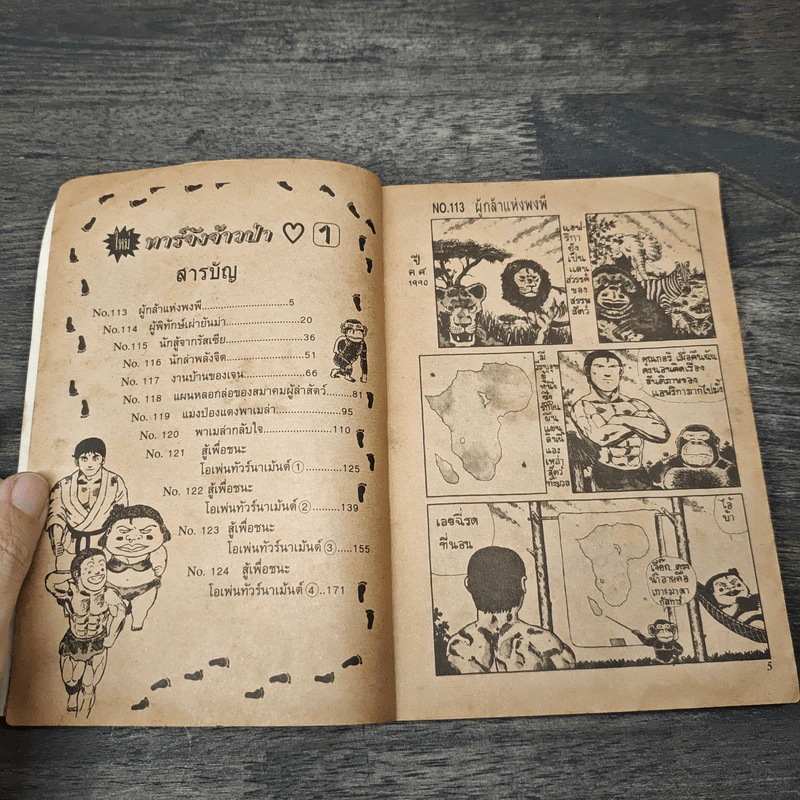 ใหม่ ทาร์จังจ้าวป่า ♡ 1
สารบัญ
No.113 ผู้กล้าแห่งพงพี....................5
No.114 ผู้พิทักษ์เผ่ายันม่า....................20
No.115 นักสู้จากรัสเซีย....................36
No. 116 นักล่าพลังจิต....................51
No. 117 งานบ้านของเจน....................66
No. 118 แผนหลอกล่อของสมาคมผู้ล่าสัตว์........81
No. 119 แมงป่องแดงพาเมล่า....................95
No. 120 พาเมล่ากลับใจ....................110
No. 121 สู้เพื่อชนะ
โอเพ่นทัวร์นาเม้นต์ ①............125
No. 122 สู้เพื่อชนะ
โอเพ่นทัวร์นาเม้นต์ ②........139
No. 123 สู้เพื่อชนะ
โอเพ่นทัวร์นาเม้นต์ ③.....155
No. 124 สู้เพื่อชนะ
โอเพ่นทัวร์นาเม้นต์ ④..171
NO.113 ผู้กล้าแห่งพงพี
ปี
ค.ศ.
1990
แอฟ
ริกา
ยัง
เป็น
แดน
สวรรค์
ของ
สรรพ
สัตว์
คุณกอริ เมื่อคืนฉัน
คงนอนคิดเรื่อง
สันติภาพของ
แอฟริกามากไปมั้ง
เลยฉี่รด
ที่นอน
โอ้
บ้า
5